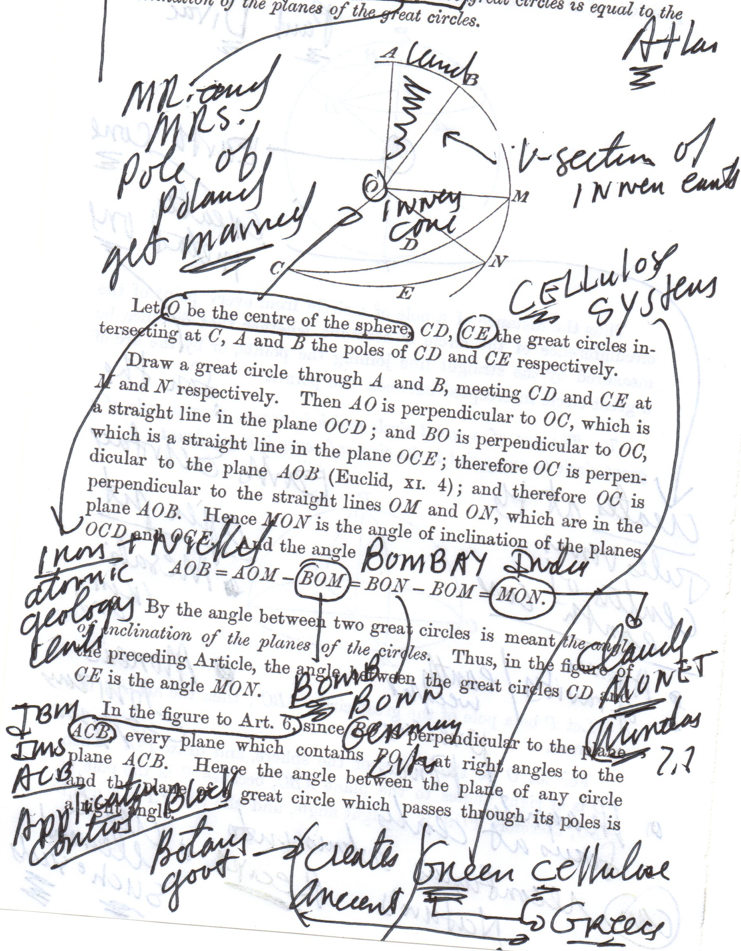 of the planes of the great circles.
great circles is equal to the
Atlas
A
land
B
MR. and
MRS.
Pole of
Poland
get married
V-section of
INNER earth
O
INNER
Cone
M
D
N
C
E
CELLULOSE
SYSTEMS
Let O be the centre of the sphere, CD, CE the great circles in-
tersecting at C, A and B the poles of CD and CE respectively.
Draw a great circle through A and B, meeting CD and CE at
M and N respectively. Then AO is perpendicular to OC, which is
a straight line in the plane OCD; and BO is perpendicular to OC,
which is a straight line in the plane OCE; therefore OC is perpen-
dicular to the plane AOB (Euclid, XI. 4); and therefore OC is
perpendicular to the straight lines OM and ON, which are in the
plane AOB. Hence MON is the angle of inclination of the planes
OCD and OCE and the angle
Iron + Nickel
atomic
geology
BOMBAY India
AOB = AOM – BOM = BON – BOM = MON.
By the angle between two great circles is meant the angle
of inclination of the planes of the circles. Thus, in the figure of
the preceding Article, the angle between the great circles CD and
CE is the angle MON.
MONET
BOMB
BONN
Germany
City
IBM
IMS
ACB
Application Block
Control
In the figure to Art. 6, since perpendicular to the plane
ACB, every plane which contains at right angles to the
plane ACB. Hence the angle between the plane of any circle
and the plane great circle which passes through its poles is
a right angle.
Botany
Creates
Green cellulose
ancient
Greece